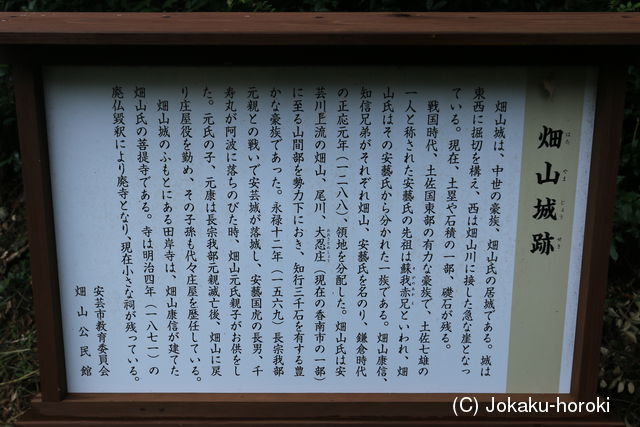 畑山城跡
はた やま じょう せき
畑山城は、中世の豪族、畑山氏の居城である。城は
東西に掘切を構え、西は畑山川に接した急な崖となっ
ている。現在、土塁や石積の一部、礎石が残る。
戦国時代、土佐国東部の有力な豪族で、土佐七雄の
一人と称された安藝氏の先祖は蘇我赤兄といわれ、畑
山氏はその安藝氏から分かれた一族である。畑山康信、
知信兄弟がそれぞれ畑山、安藝氏を名のり、鎌倉時代
の正応元年（一二八八）、領地を分配した。畑山氏は安
芸川上流の畑山、尾川、大忍庄（現在の香南市の一部）
に至る山間部を勢力下におき、知行三千石を有する豊
かな豪族であった。永禄十二年（一五六九）長宗我部
元親との戦いで安芸城が落城し、安藝国虎の長男、千
寿丸が阿波に落ちのびた時、畑山元氏親子がお供をし
た。元氏の子、元康は長宗我部元親滅亡後、畑山に戻
り庄屋役を勤め、その子孫も代々庄屋を歴任している。
畑山城のふもとにある田岸寺は、畑山康信が建てた
畑山氏の菩提寺である。寺は明治四年（一八七一）の
廃仏毀釈により廃寺となり、現在小さな祠が残っている。
安芸市教育委員会
畑山公民館
(C) Jokaku-horoki